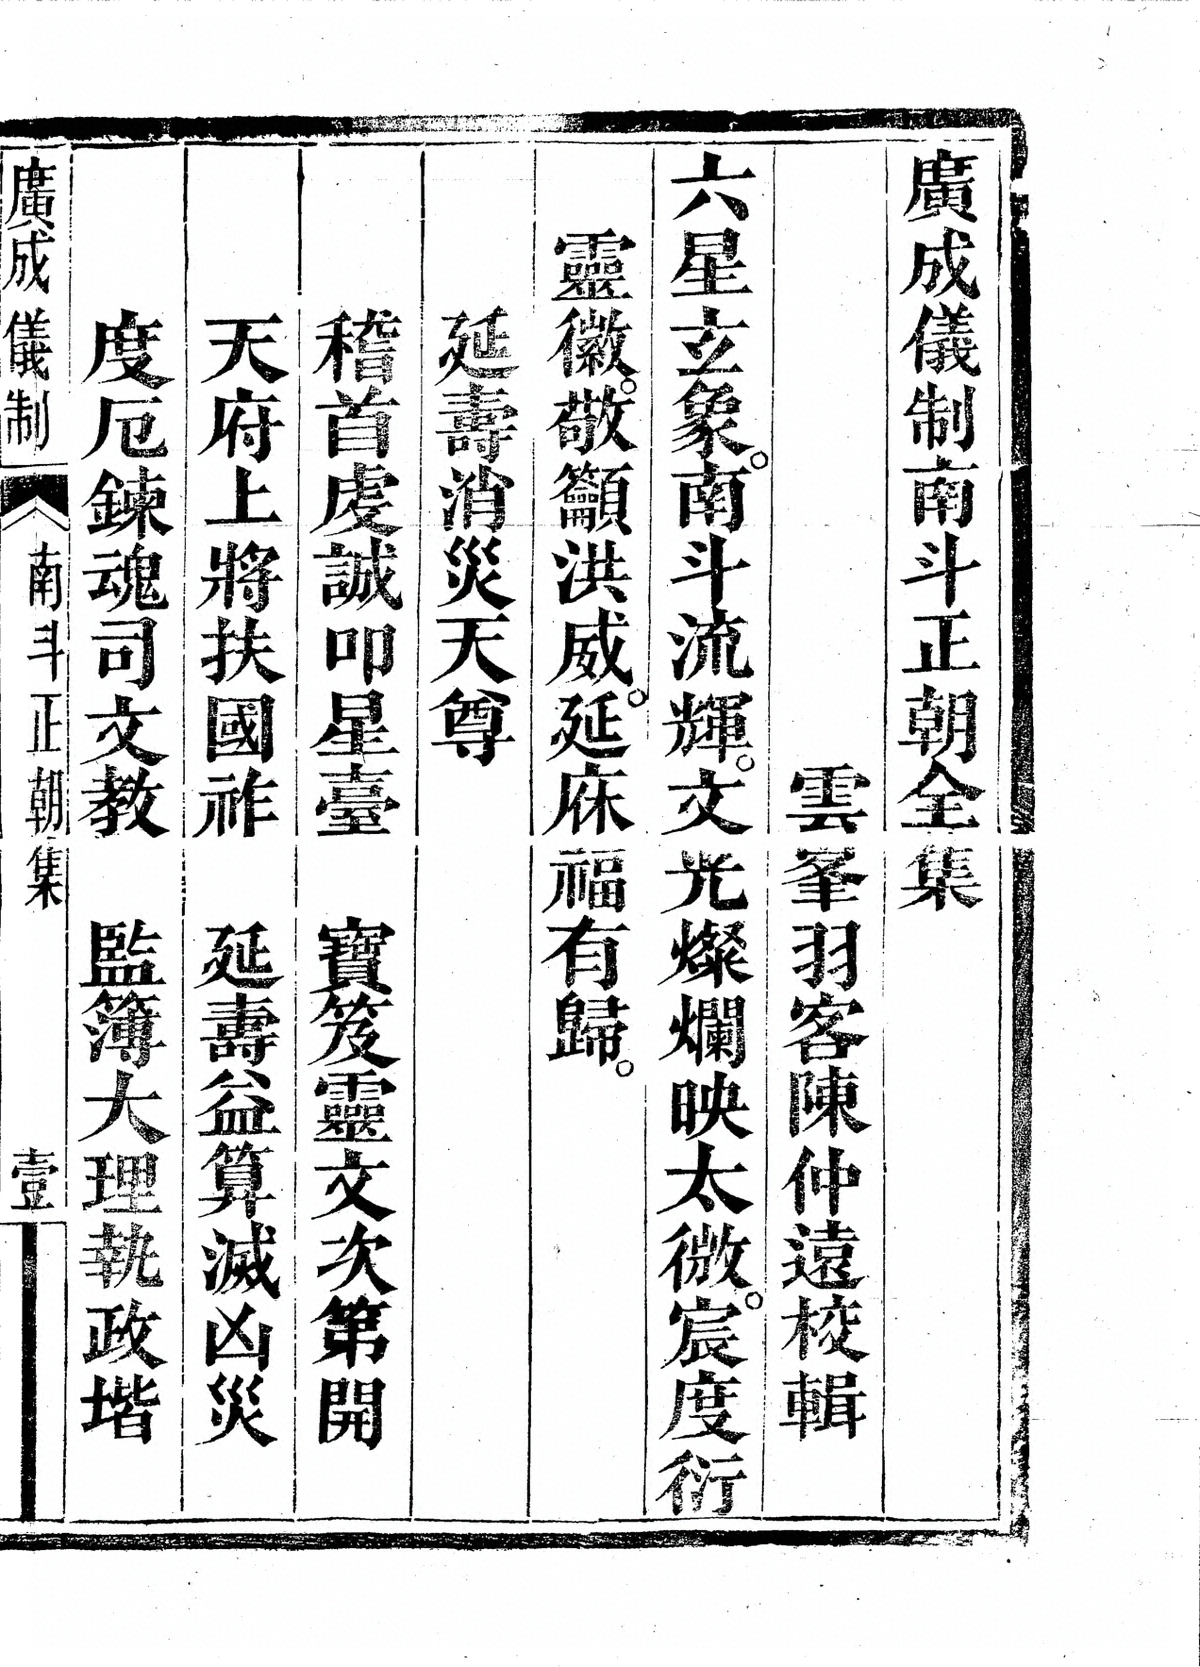 廣成儀制南斗正朝全集
雲峯羽客陳仲遠校輯
六星玄象。南斗流輝。文光燦爛映太微。宸度衍
靈徽。敬籲洪威。延庥福有歸。
延壽消災天尊
稽首虔誠叩星臺　寶笈靈文次第開
天府上將扶國祚　延壽益算滅凶災
度厄鍊魂司文教　監簿大理執政堦
廣成儀制　南斗正朝集　壹